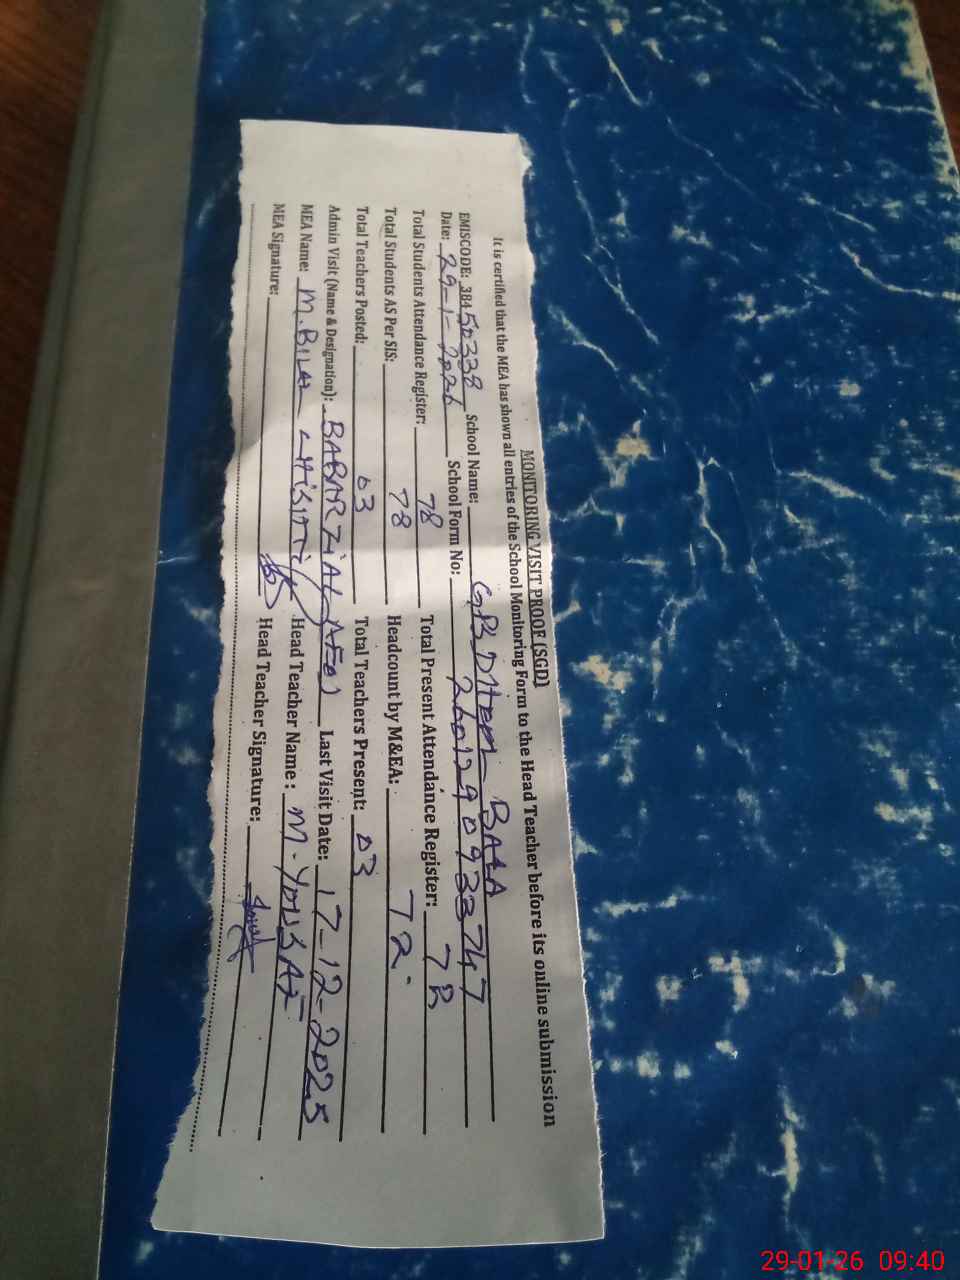 MONITORING VISIT PROOF (SGD)
It is certified that the MEA has shown all entries of the School Monitoring Form to the Head Teacher before its online submission
EMISCODE: 38450338 School Name: GPS BALA
Date: 29-1-2026 School Form No: 2601290933747
Total Students Attendance Register: 78 Total Present Attendance Register: 72
Total Students AS Per SIS: 78 Headcount by M&EA: 72.
Total Teachers Posted: 03 Total Teachers Present: 03
Admin Visit (Name & Designation): BABAR AEO Last Visit Date: 17-12-2025
MEA Name: M.BILAL Head Teacher Name: M.YOUSAF
MEA Signature: Head Teacher Signature:
29-01-26 09:40